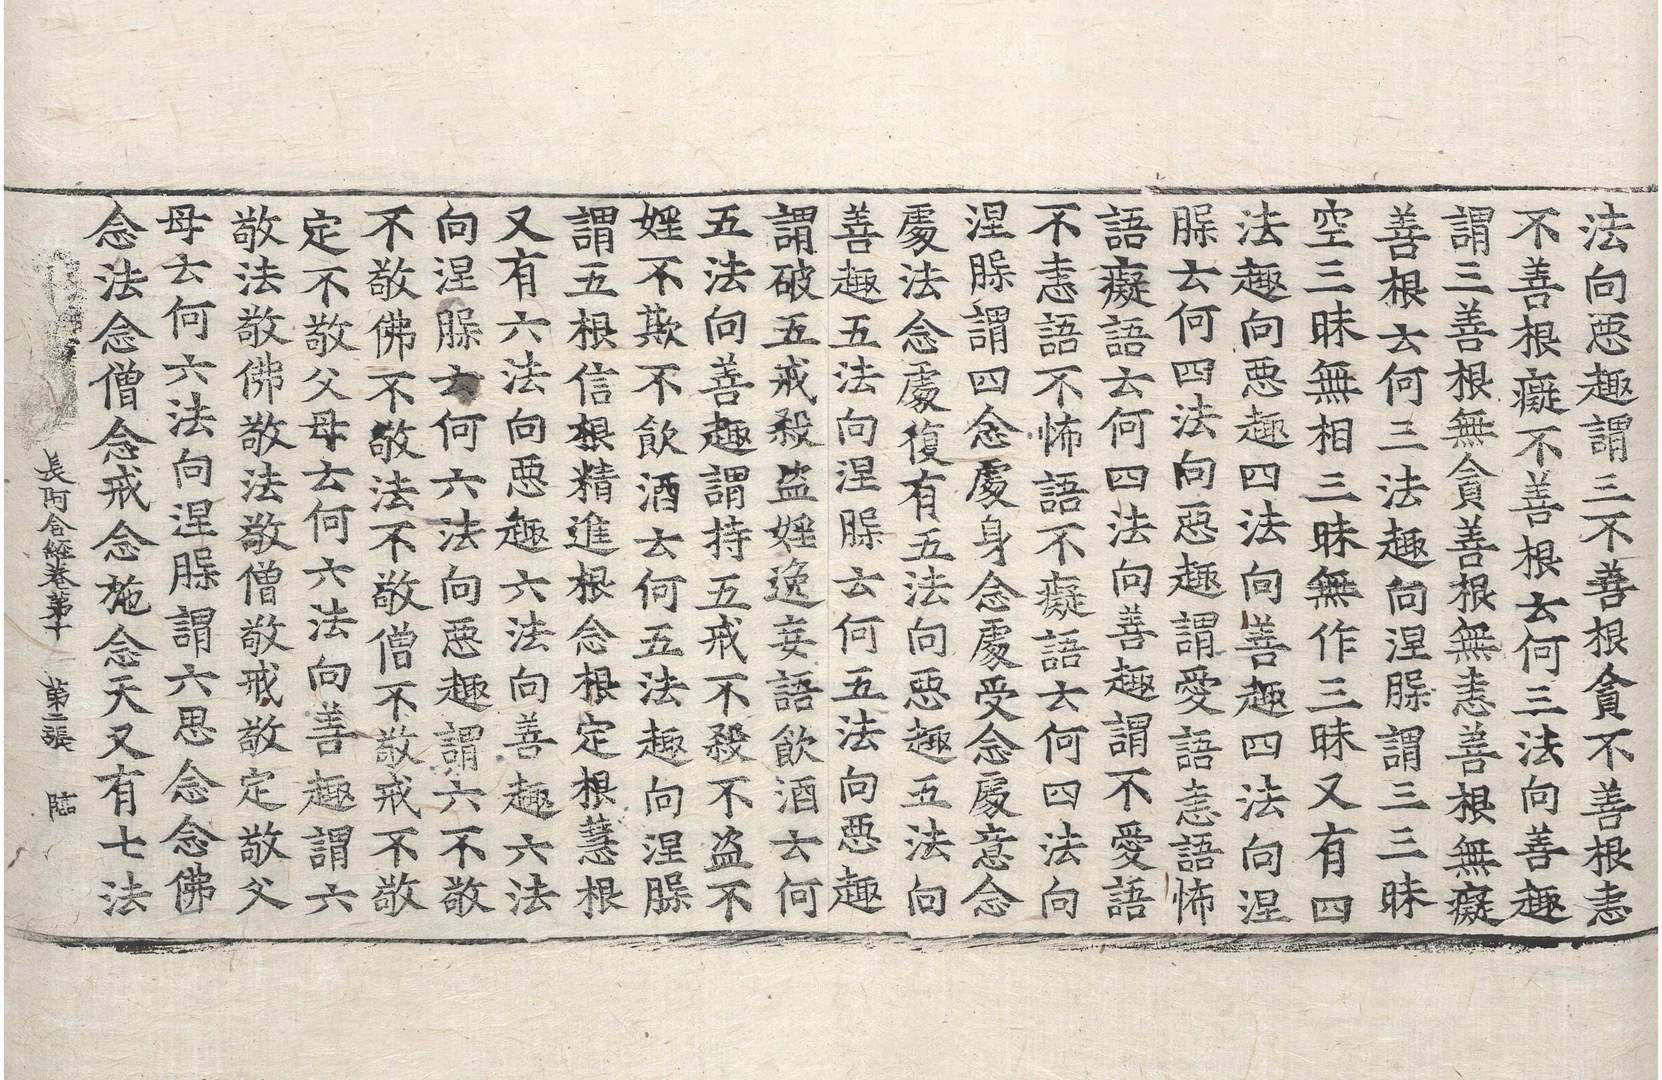 法向惡趣謂三不善根貪不善根恚
不善根癡不善根云何三法向善趣
謂三善根無貪善根無恚善根無癡
善根云何三法趣向涅槃謂三三昧
空三昧無相三昧無作三昧又有四
法趣向惡趣四法向善趣四法向涅
槃云何四法向惡趣謂愛語恚語怖
語癡語云何四法向善趣謂不愛語
不恚語不怖語不癡語云何四法向
涅槃謂四念處身念處受念處意念
處法念處復有五法向惡趣五法向
善趣五法向涅槃云何五法向惡趣
謂破五戒殺盜婬逸妄語飲酒云何
五法向善趣謂持五戒不殺不盜不
婬不欺不飲酒云何五法趣向涅槃
謂五根信根精進根念根定根慧根
又有六法向惡趣六法向善趣六法
向涅槃云何六法向惡趣謂六不敬
不敬佛不敬法不敬僧不敬戒不敬
定不敬父母云何六法向善趣謂六
敬法敬佛敬法敬僧敬戒敬定敬父
母云何六法向涅槃謂六思念念佛
念法念僧念戒念施念天又有七法
長阿含經卷第十 第二張 臨